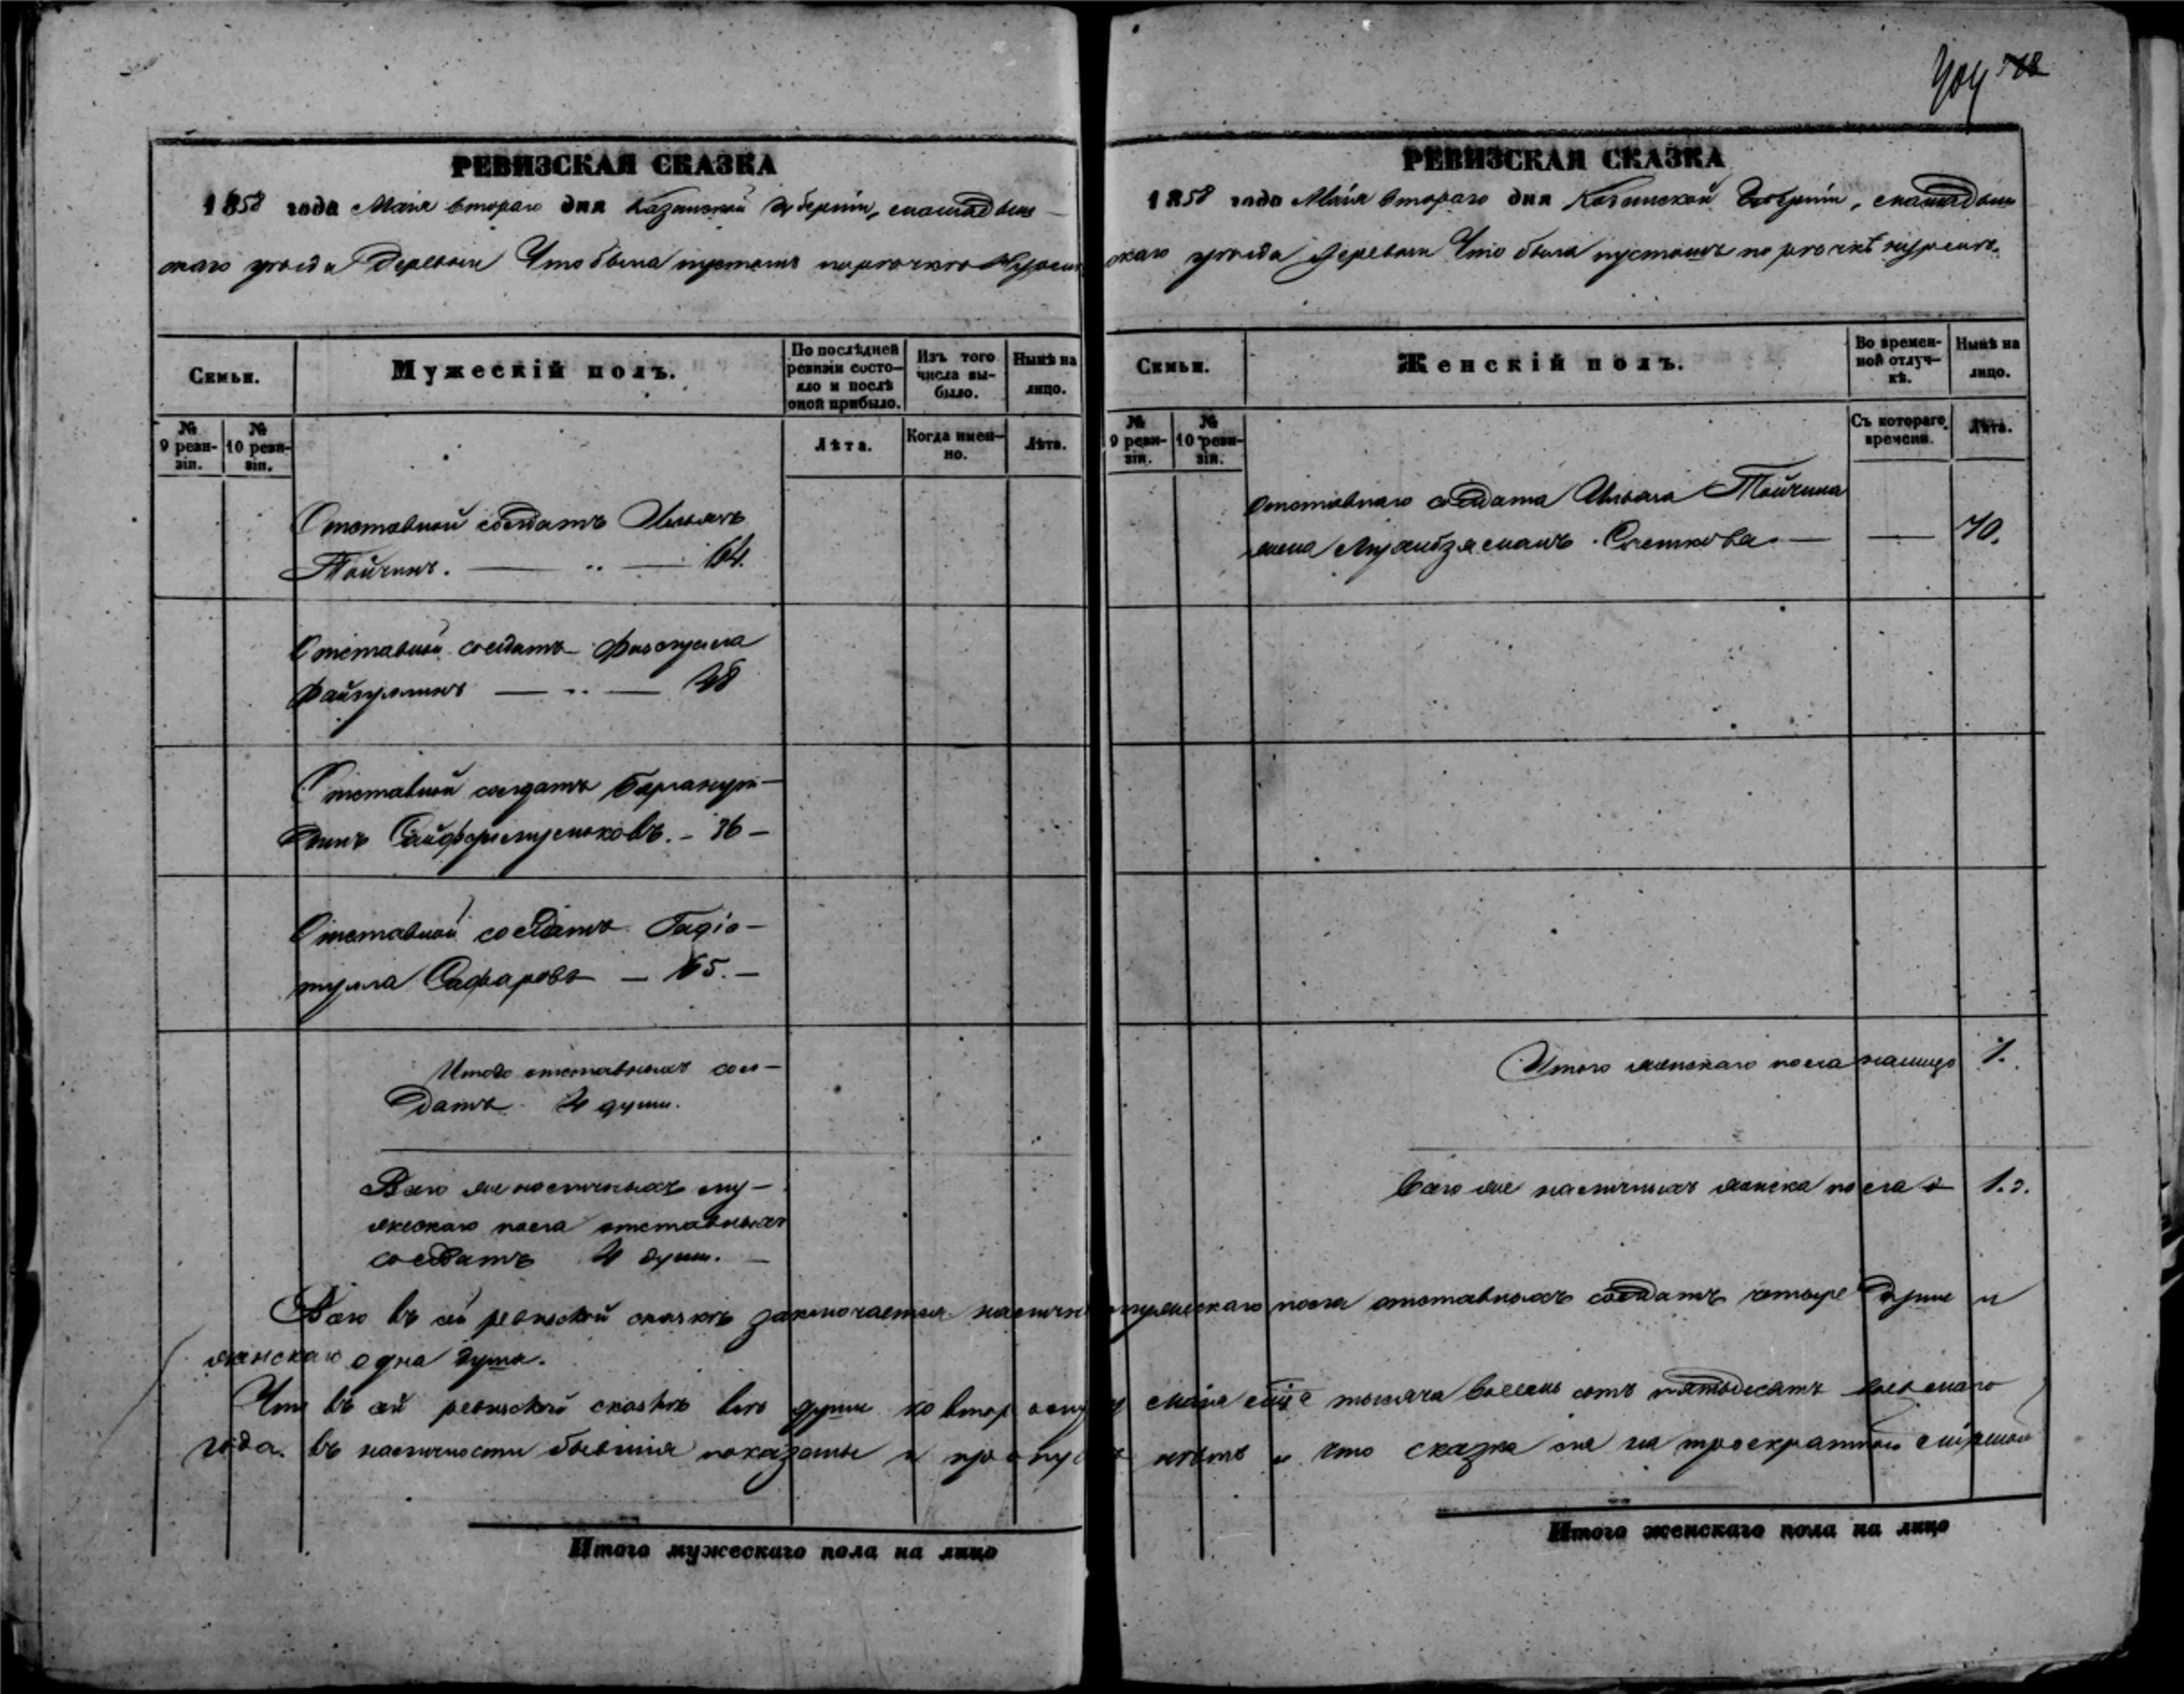 РЕВИЗСКАЯ СКАЗКА
1858 года Мая второго дня Казанской губерніи, мамадыш-
скаго уезда Деревни Что была пустошь по речке
Семьи.
Мужескій полъ.
По послѣдней ревизіи состояло и послѣ оной прибыло.
Изъ того числа выбыло.
Нынѣ на лицо.
№ 9 ревизіи.
№ 10 ревизіи.
Лѣта.
Когда именно.
Лѣта.
Отставной солдатъ Ильясъ
Тойчинъ. — 64.
Отставной солдатъ
Файзуллинъ — 48
Отставной солдатъ Бурганут-
динъ — 36 —
Отставной солдатъ
тулла Сафаровъ — 65. —
Итого отставныхъ сол-
датъ 4 души.
Всего же наличныхъ му-
жескаго пола отставныхъ
солдатъ 4 души. —
Итого мужескаго пола на лицо
709 708
РЕВИЗСКАЯ СКАЗКА
1858 года Маія втораго дня Казанской Губерніи, мамадыш
скаго уезда Деревни Что была пустошь по речкѣ
Семьи.
Женскій полъ.
Во временной отлучкѣ.
Нынѣ на лицо.
№ 9 ревизіи.
№ 10 ревизіи.
Съ котораго времени.
Лѣта.
Отставнаго солдата Ильяса Тойчина
жена — — 70.
Итого женскаго пола налицо 1.
Всего же наличныхъ женска пола 1.
Всего въ сей ревизской сказкѣ заключается налично мужескаго пола отставныхъ солдатъ четыре души и
женскаго одна душа.
Что въ сей ревизской сказкѣ все души ко второму маія тысяча восемь сотъ пятьдесятъ восьмаго
года въ наличности бывшія показаны и нѣтъ и что сказка сія на троекратной мірской
Итого женскаго пола на лицо